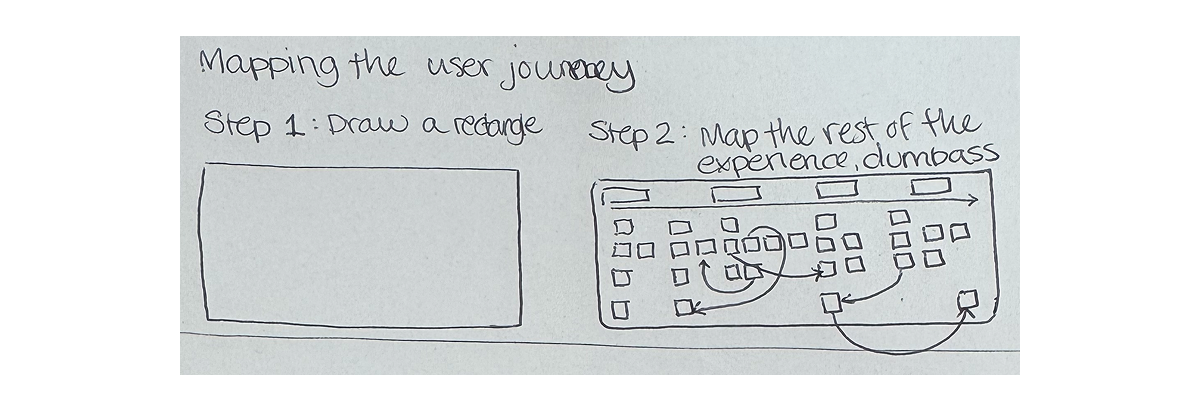 Mapping the user journey
Step 1: Draw a rectange
Step 2: Map the rest of the
experience, dumbass